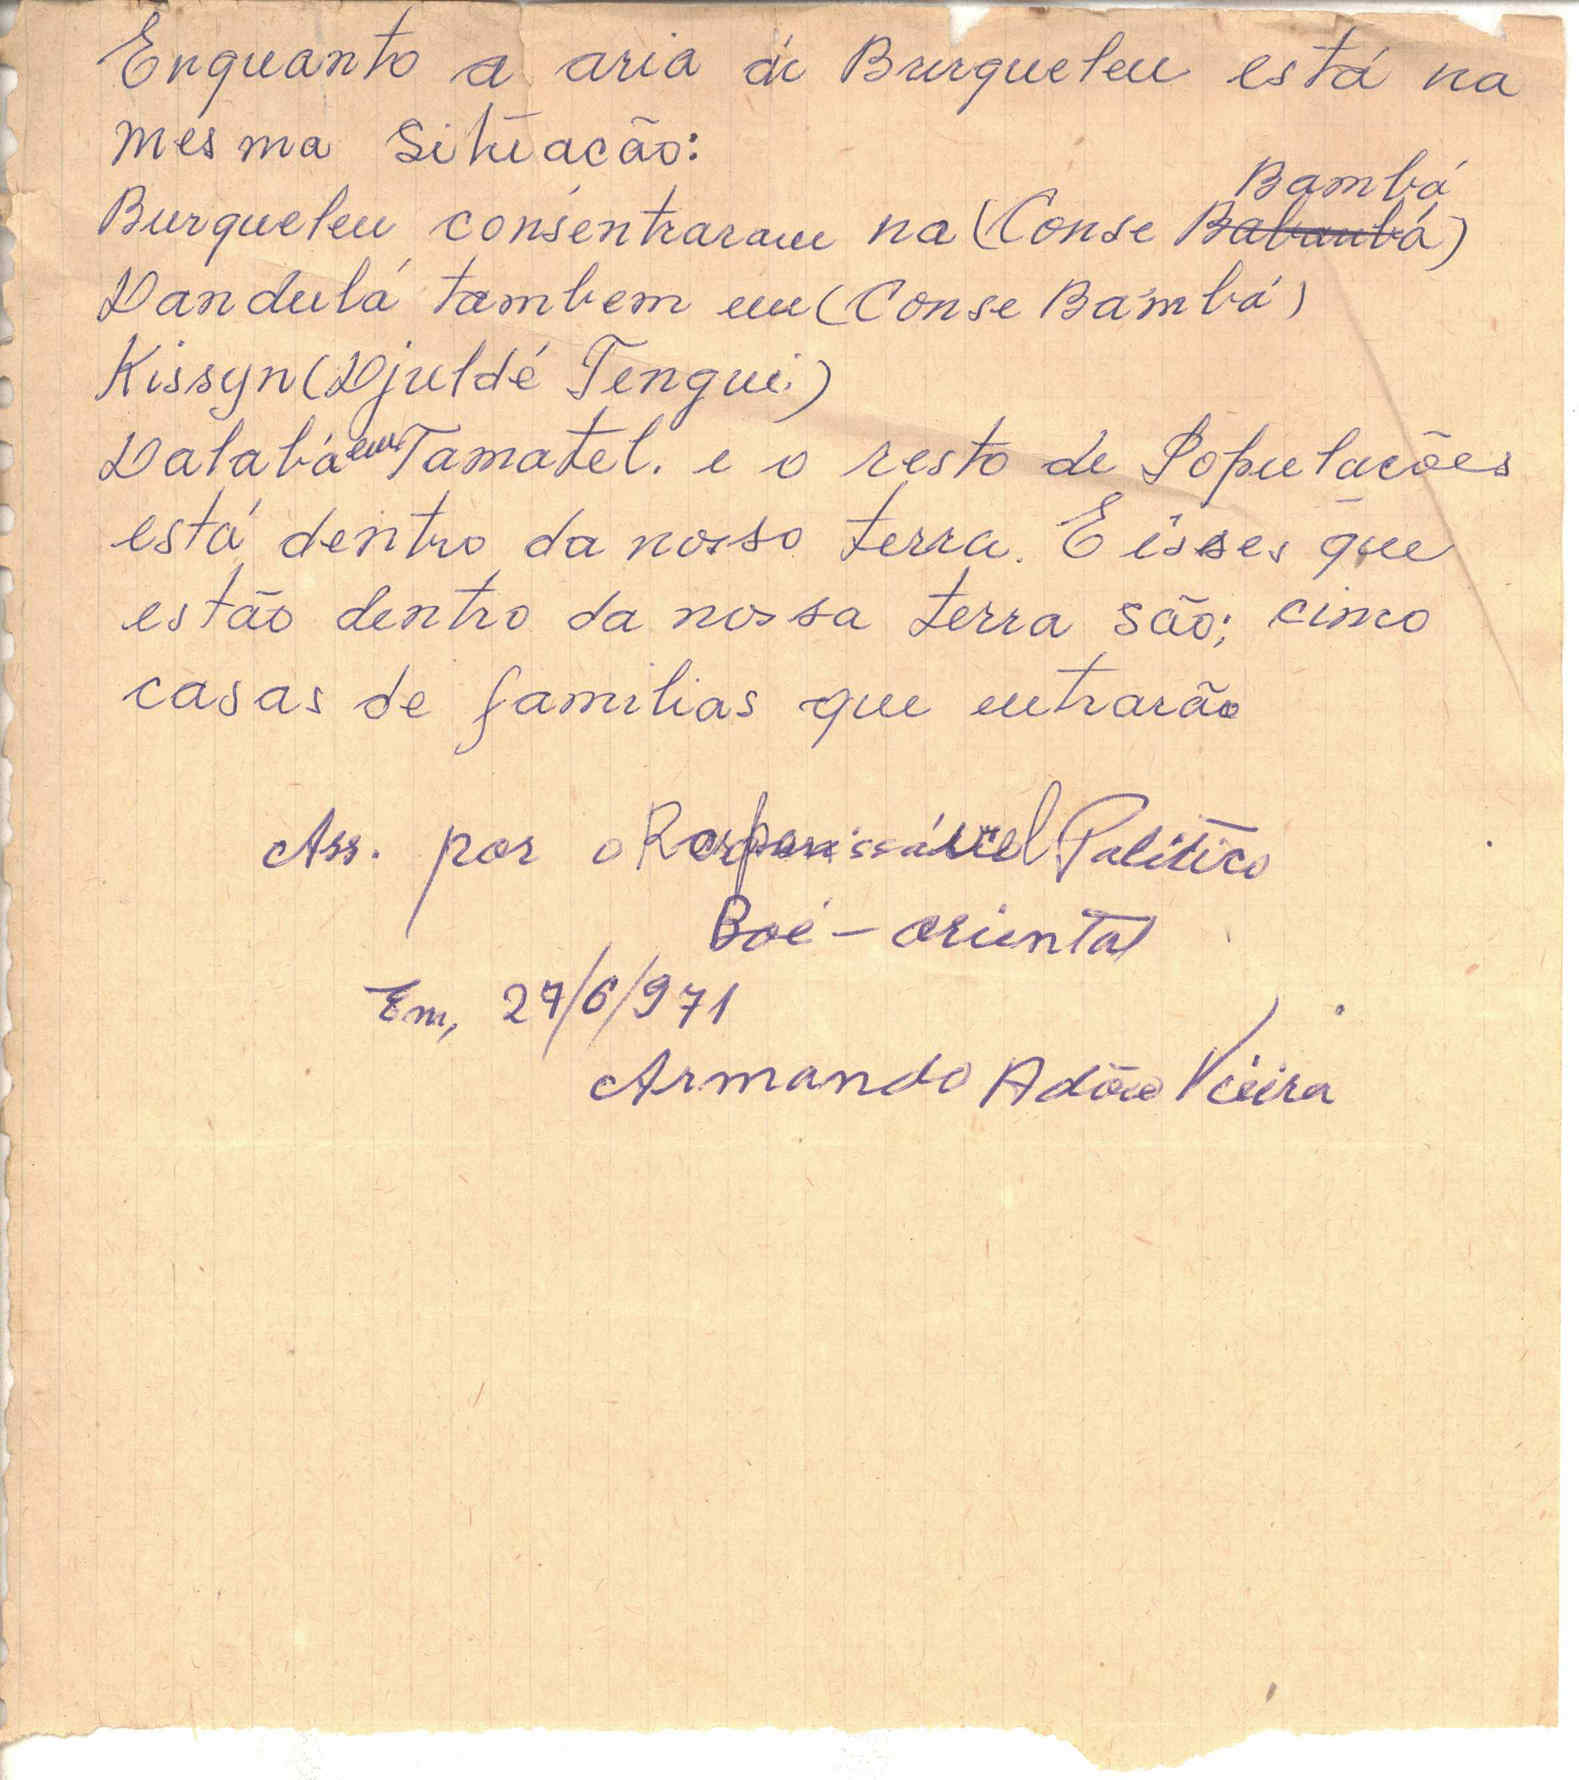 Enquanto a aria di Burqueleu está na
mesma Situacão:
Bambá
Burqueleu consentraram na (Conse Babambá)
Dandulá tambem em (Conse Bambá)
Kissyn (Djuldé Tengui)
Dalabá em Tamatel. e o resto de Populacões
está dentro da nosso terra. E isses que
estão dentro da nossa terra são; cimco
casas de familias que entrarão
Ass. por o Responssável Politico
Boé - oriental
Em, 27/6/971
Armando Adão Vieira